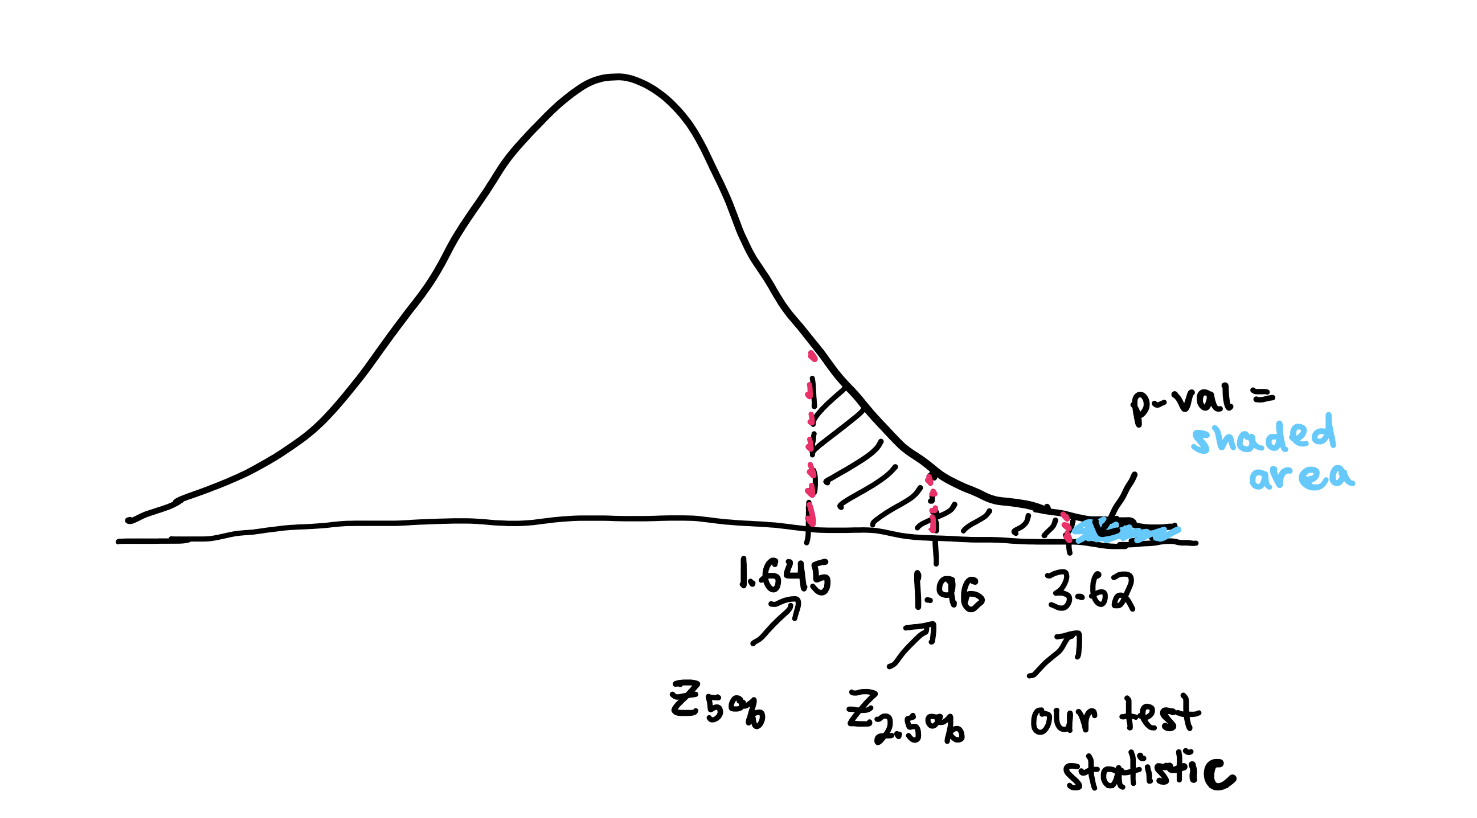 p-val =
shaded
area
1.645
1.96
3.62
Z5%
Z2.5%
our test
statistic